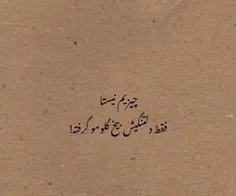 چیزیم نیستا
فقط دلتنگیش بیخ گلومو گرفته!